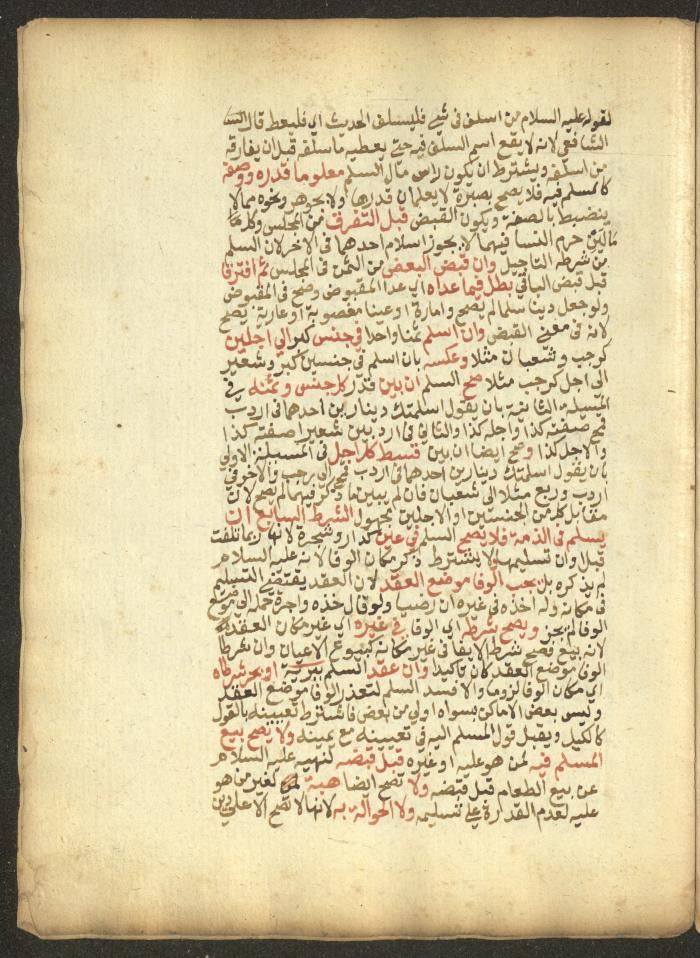 لقوله عليه السلام من اسلف في شيء فليسلف الحديث اي فليعط قال
الشافعي لانه لا يقع اسم السلف فيه حتى يعطيه ما سلفه قبل ان يفارقه
من اسلفه ويشترط ان يكون راس مال السلم معلوما قدره ووصفه
كالمسلم فيه فلا يصح بصبرة لا يعلمان قدرها ولا بجوهر ونحوه مما لا
ينضبط بالصفة ويكون القبض قبل التفرق من المجلس وكل
مالين حرم النسا فيهما لا يجوز اسلام احدهما في الاخر لان السلم
من شرطه التاجيل وان قبض البعض من الثمن في المجلس ثم افترقا
قبل قبض الباقي بطل فيما عداه اي عدا المقبوض وصح في المقبوض
ولو جعل دينا سلما لم يصح وامانة او عينا مغصوبة او عارية يصح
لانه في معنى القبض وان اسلم ثمنا واحدا في جنس كبر الي اجلين
كرجب وشعبان مثلا وعكسه بان اسلم في جنسين كبر وشعير
الى اجل كرجب مثلا صح السلم ان بين قدر كل جنس وثمنه في
المسيلة الثانية بان يقول اسلمتك دينارين احدهما في اردب
قمح صفته كذا واجله كذا والثاني في اردبين شعيرا صفته كذا
والاجل كذا وصح ايضا ان بين قسط كل اجل في المسيلة الاولي
بان يقول اسلمتك دينارين احدهما في اردب قمح الى رجب والاخر في
اردب وربع مثلا الى شعبان فان لم يبين ما ذكر فيهما لم يصح لان
مقابل كل من الجنسين او الاجلين مجهول الشرط السابع ان
يسلم في الذمة فلا يصح السلم في عين كدار وشجرة لانها ربما تلفت
قبل اوان تسليمها ولا يشترط ذكر مكان الوفا لانه عليه السلام
لم يذكره بل يجب الوفا موضع العقد لان العقد يقتضي التسليم
في مكانه وله اخذه في غيره ان رضيا ولو قال خذه واجرة حمله الى موضع
الوفا لم يجز ويصح شرطه اي الوفا في غيره اي غير مكان العقد
لانه بيع فصح شرط الايفا في غير مكانه كبيوع الاعيان وان شرطا
الوفا موضع العقد كان تاكيدا وان عقد السلم ببرية او بحر شرطاه
اي مكان الوفا لزوما والا فسد السلم لتعذر الوفا موضع العقد
وليس بعض الاماكن سواه اولي من بعض فاشترط تعيينه بالقول
كالكيل ويقبل قول المسلم اليه في تعيينه مع يمينه ولا يصح بيع
المسلم فيه لمن هو عليه او غيره قبل قبضه لنهيه عليه السلام
عن بيع الطعام قبل قبضه ولا تصح ايضا هبته لغير من هو
عليه لعدم القدرة على تسليمه ولا الحوالة به لانها لا تصح الا على دين